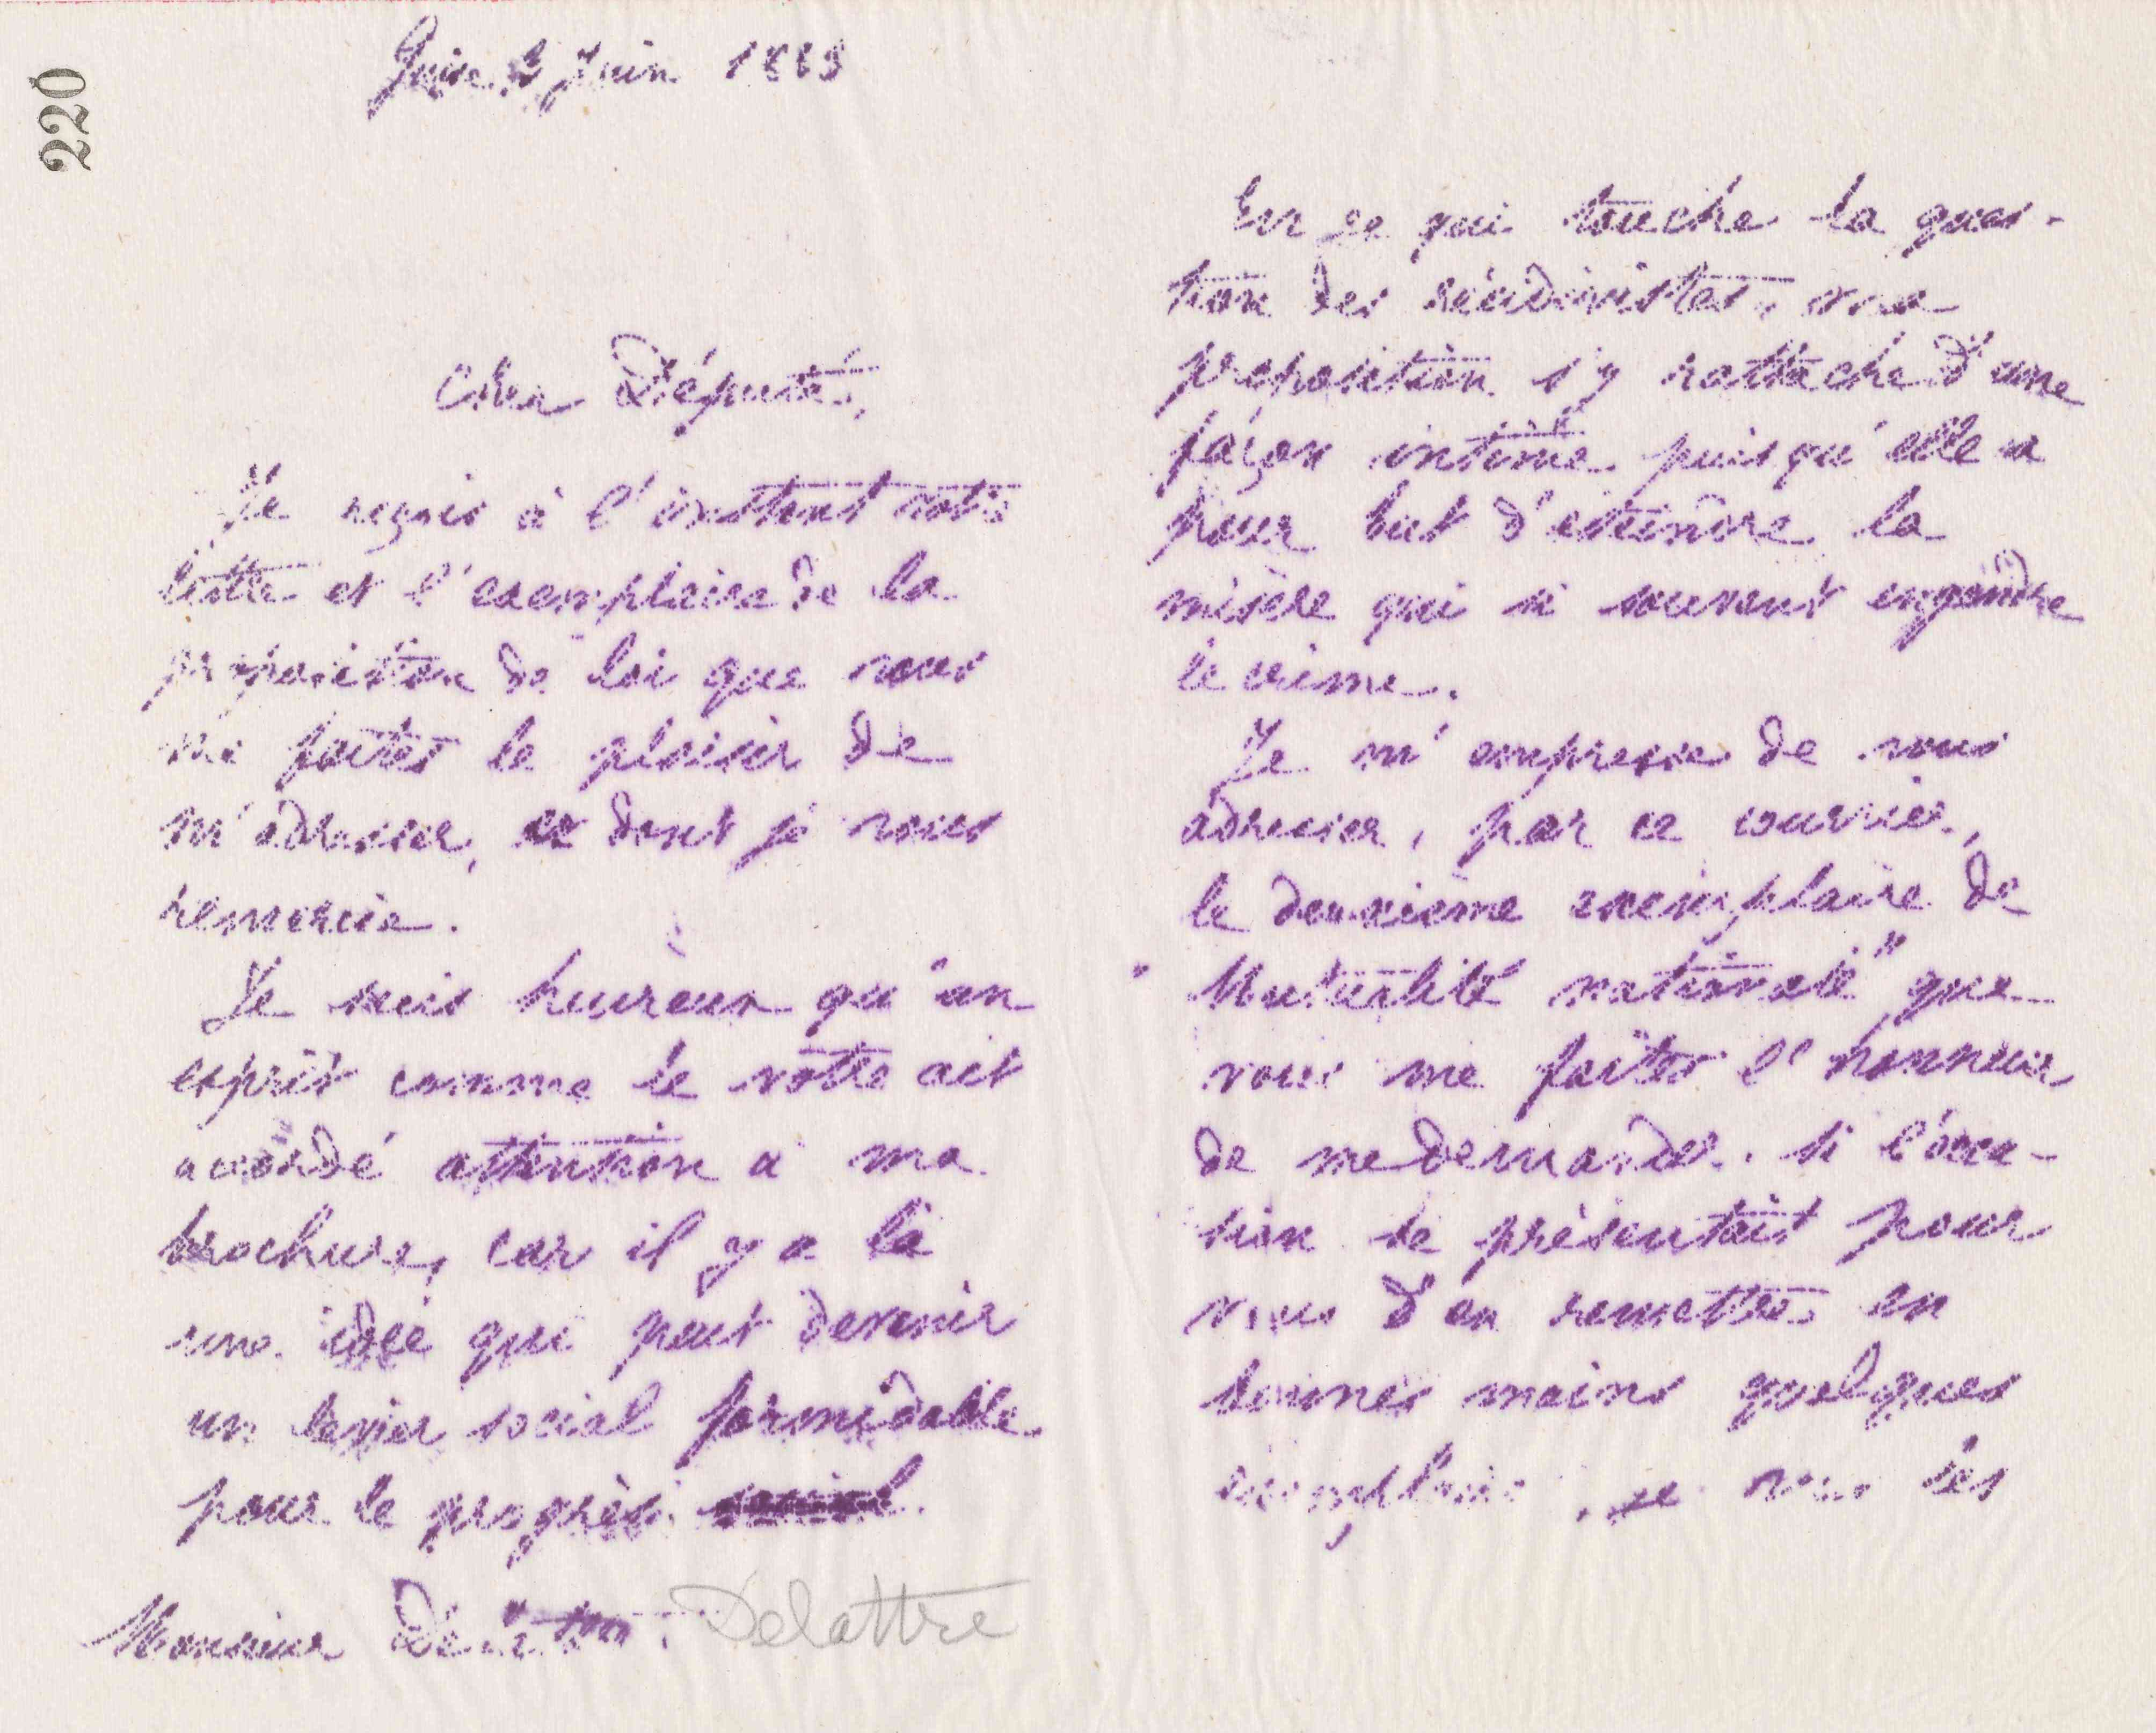 220
Guise 2 Juin 1883
Cher Député,
Je reçois à l'instant votre
lettre et l'exemplaire de la
proposition de loi que vous
me faites le plaisir de
m'adresser, et dont je vous
remercie.
Je suis heureux qu'un
esprit comme le vôtre ait
accordé attention à ma
brochure, car il y a là
une idée qui peut devenir
un levier social formidable
pour le progrès
Monsieur Delattre. Delattre
En ce qui touche la ques-
tion des récidivistes, ma
proposition s'y rattache d'une
façon intime puisqu'elle a
pour but d'éteindre la
misère qui si souvent engendre
le crime.
Je m'empresse de vous
adresser, par ce courrier,
le deuxième exemplaire de
"Mutualité nationale" que
vous me faites l'honneur
de me demander. Si l'occa-
sion se présentait pour
vous d'en remettre en
bonnes mains quelques
exemplaires, je vous les